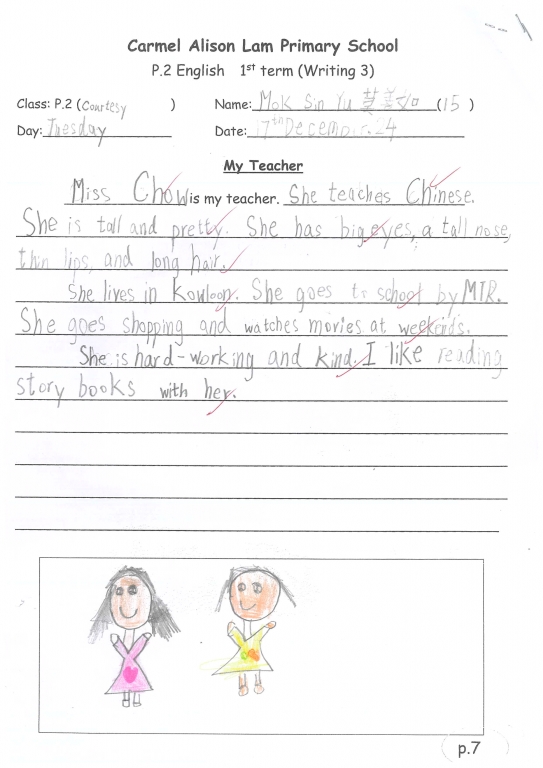 Carmel Alison Lam Primary School
P.2 English 1st term (Writing 3)
Class: P.2 (Courtesy ) Name: Mok Sin Yu (15 )
Day: Tuesday Date: 17th December. 24
My Teacher
Miss Chow is my teacher. She teaches Chinese.
She is tall and pretty. She has big eyes, a tall nose,
thin lips, and long hair.
She lives in Kowloon. She goes to school by MTR.
She goes shopping and watches movies at weekends.
She is hard-working and kind. I like reading
story books with her.
p.7